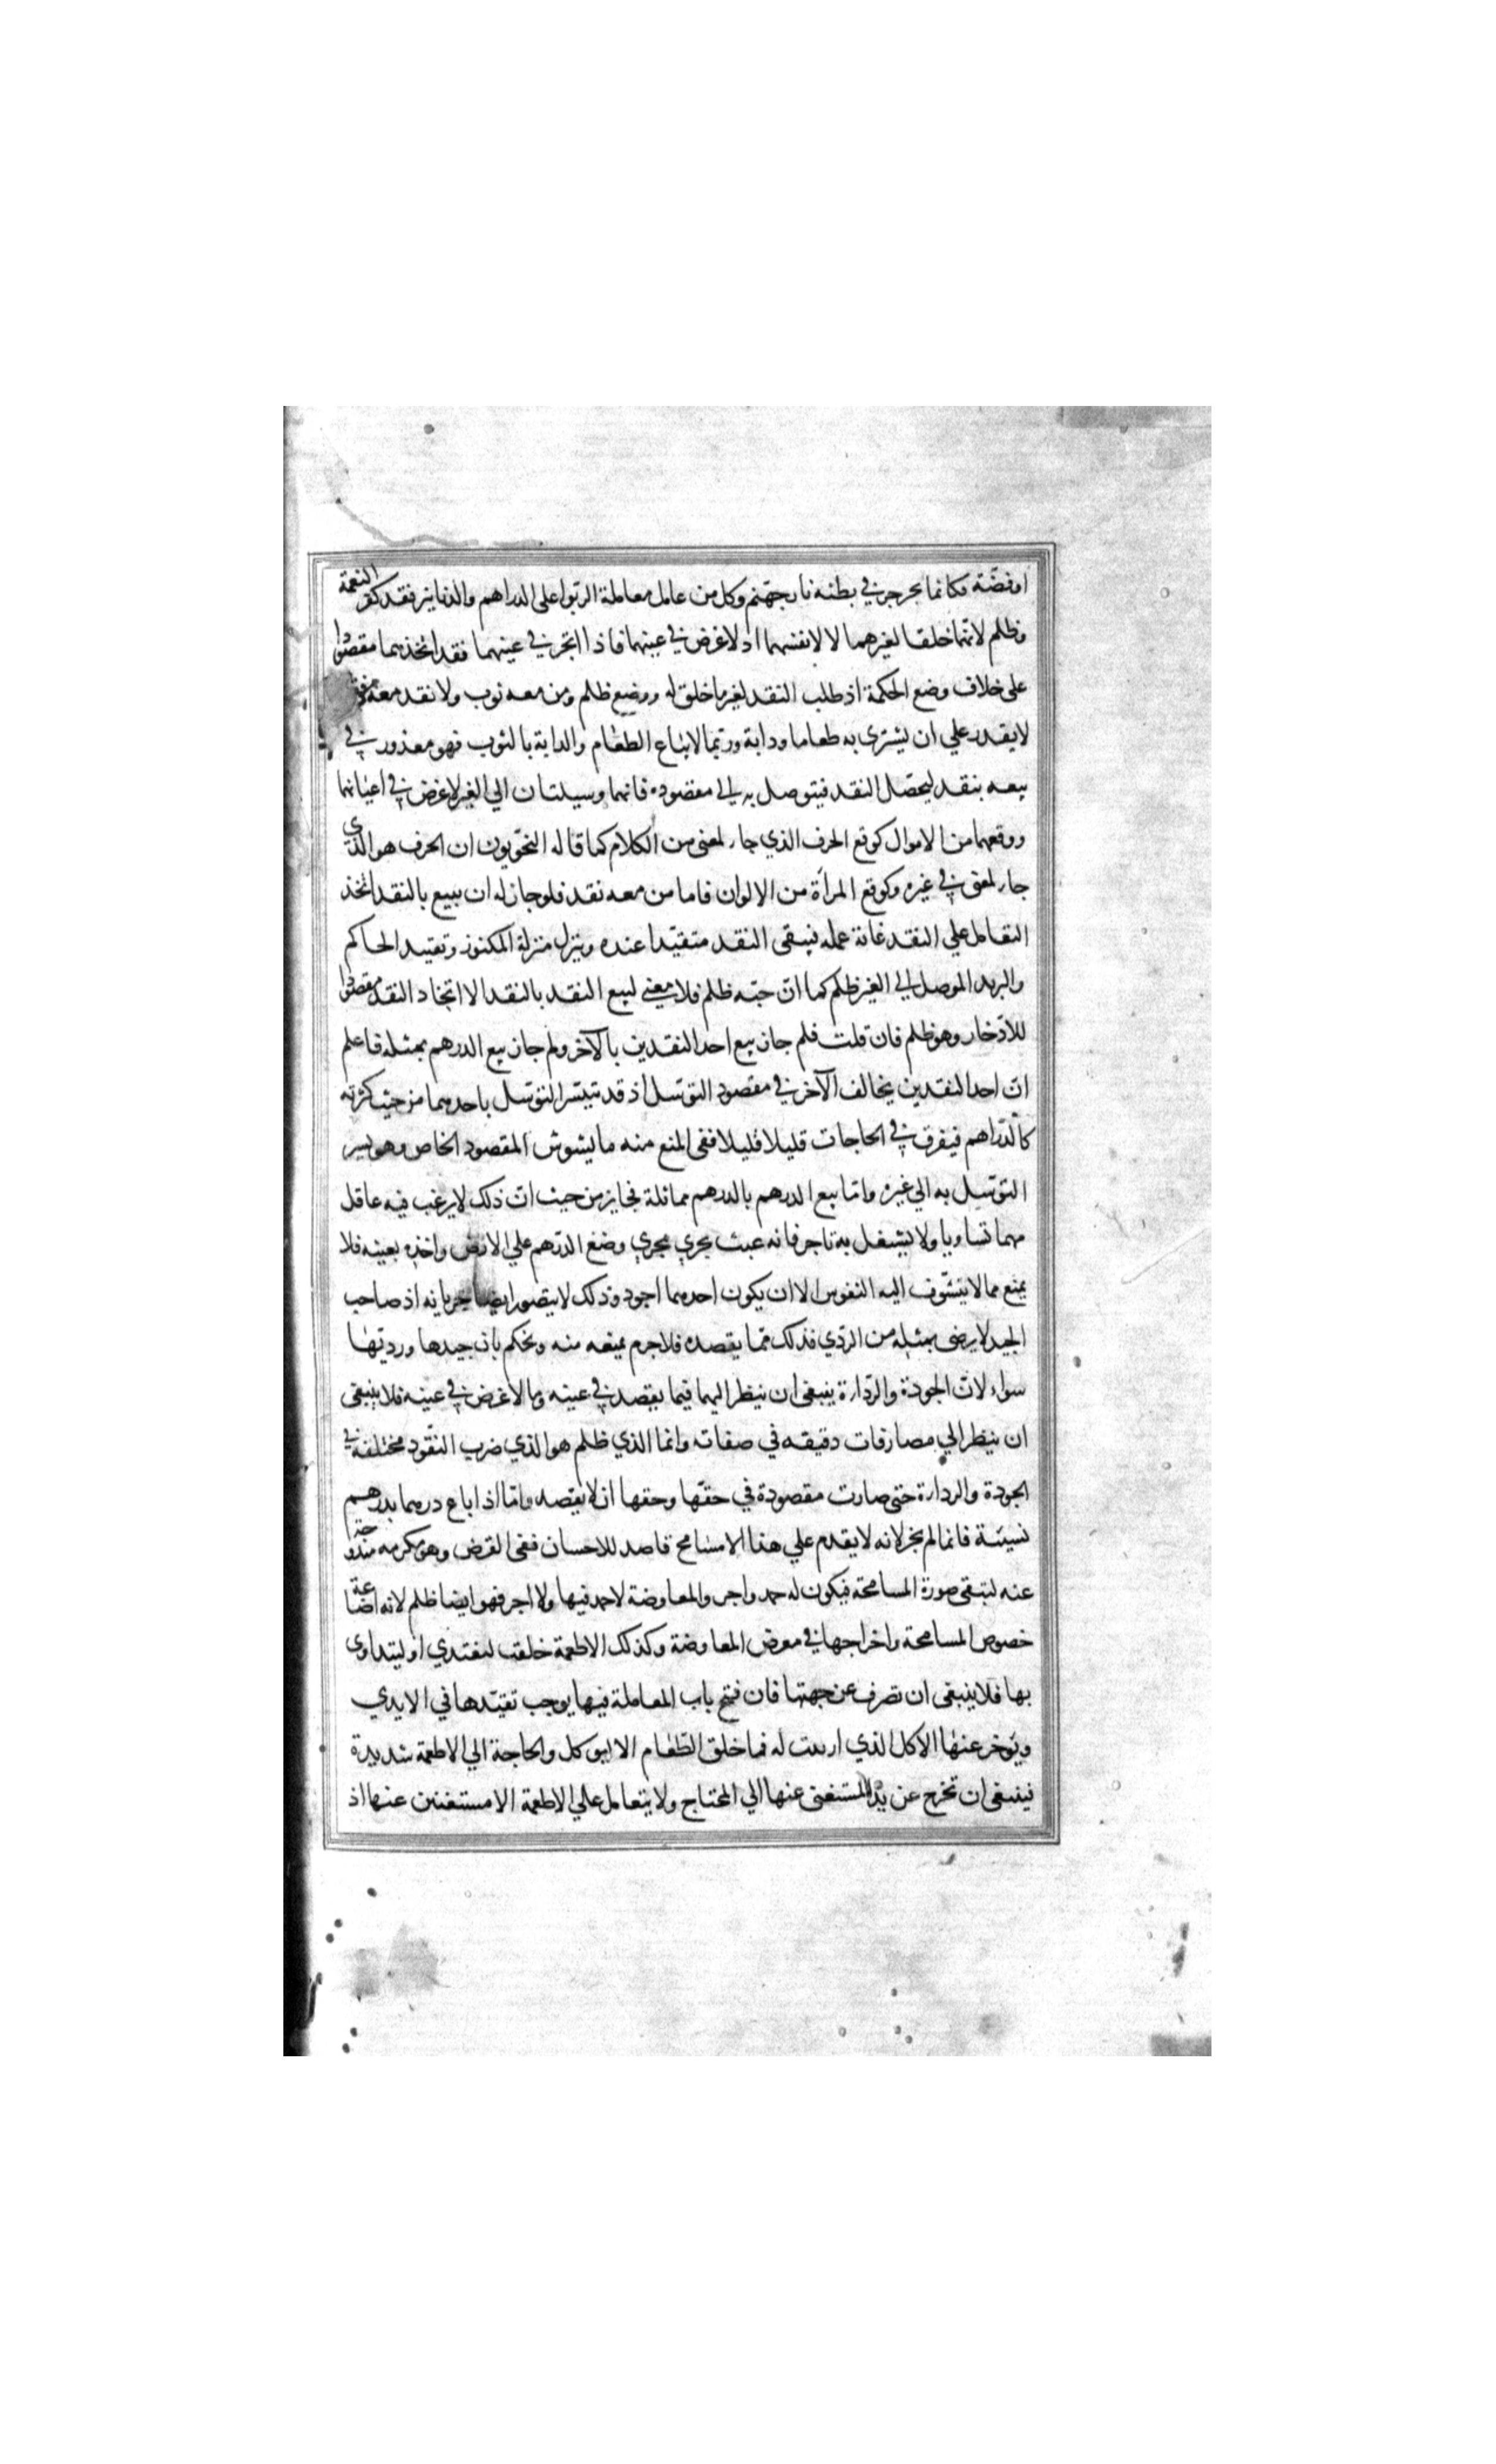 او فضّة فكانما يجرجر في بطنه نار جهنم وكل من عامل معاملة الربوا على الدراهم والدنانير فقد كفر النعمة
وظلم لانهما خلقا لغيرهما لا لانفسهما اذ لا غرض في عينهما فاذا اتجر في عينهما فقد اتخذهما مقصودا
على خلاف وضع الحكمة اذ طلب النقد لغير ما خلق له ووضع ظلم ومن معه ثوب ولا نقد معه فقد
لا يقدر علي ان يشترى به طعاما ودابة وربما لا يباع الطعام والدابة بالثوب فهو معذور في
بيعه بنقد ليحصل النقد فيتوصل به الى مقصوده فانهما وسيلتان الي الغير لا غرض في اعيانهما
ووقعهما من الاموال كوقع الحرف الذي جاء لمعنى من الكلام كما قاله النحويون ان الحرف هو الذي
جاء لمعنى في غيره وكوقع المرآة من الالوان فاما من معه نقد فلو جاز له ان يبيع بالنقد اتخذ
التعامل علي النقد غاية عمله فيبقى النقد متقيدا عنده وينزل منزلة المكنوز وتقييد الحاكم
والبريد الموصل الي الغير ظلم كما ان حبسه ظلم فلا معني لبيع النقد بالنقد الا اتخاد النقد مقصودا
للادخار وهو ظلم فان قلت فلم جاز بيع احد النقدين بالآخر ولم جاز بيع الدرهم بمثله فاعلم
ان احد النقدين يخالف الآخر في مقصود التوسل اذ قد تيسر التوسل باحدهما من حيث كثرته
كالدراهم فيفرق في الحاجات قليلا قليلا ففى المنع منه ما يشوش المقصود الخاص وهو يسر
التوسل به الي غيره واما بيع الدرهم بالدرهم مماثلة فجايز من حيث ان ذلك لا يرغب فيه عاقل
مهما تساويا ولا يشغل به تاجر فانه عبث يجري مجري وضع الدرهم علي الارض واخذه بعينه فلا
يمنع مما لا يتشوف اليه النفوس الا ان يكون احدهما اجود وذلك لا يتصور ايضا جريانه اذ صاحب
الجيد لا يرضى بمثله من الردي فذلك مما يقصده فلا جرم يمنعه منه ونحكم بان جيدها ورديتها
سواء لان الجودة والرداءة ينبغى ان ينظر اليهما فيما يقصد في عينه وما لا غرض في عينه فلا ينبغى
ان ينظر الي مصارفات دقيقه في صفاته وانما الذي ظلم هو الذي ضرب النقود مختلفة في
الجودة والرداءة حتى صارت مقصودة في حقها وحقها ان لا يقصد واما اذا باع درهما بدرهم
نسيئة فانما لم يجز لانه لا يقدم علي هذا الا مسامح قاصد للاحسان ففى القرض وهو مكرمه مندوحة
عنه لتبقى صورة المسامحة فيكون له حمد واجر والمعاوضة لا حمد فيها ولا اجر فهو ايضا ظلم لانه اضاعة
خصوص المسامحة واخراجها في معرض المعاوضة وكذلك الاطعمة خلقت ليغتدي او ليتداوى
بها فلا ينبغى ان تصرف عن جهتها فان فتح باب المعاملة فيها يوجب تقيدها في الايدي
ويؤخر عنها الاكل الذي اريدت له فما خلق الطعام الا ليوكل والحاجة الي الاطعمة شديدة
فينبغى ان تخرج عن يد المستغنى عنها الي المحتاج ولا يتعامل علي الاطعمة الا مستغنى عنها اذ